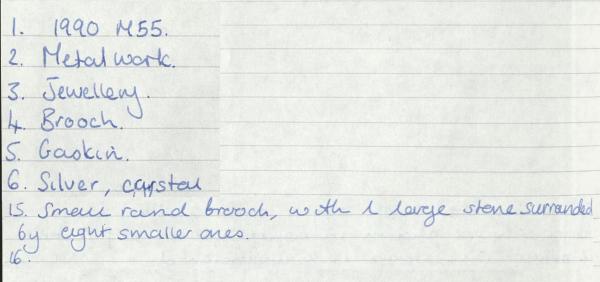 1. 1990 M55.
2. Metalwork.
3. Jewellery.
4. Brooch.
5. Gaskin.
6. Silver, crystal
15. Small round brooch, with 1 large stone surrounded
by eight smaller ones.
16.